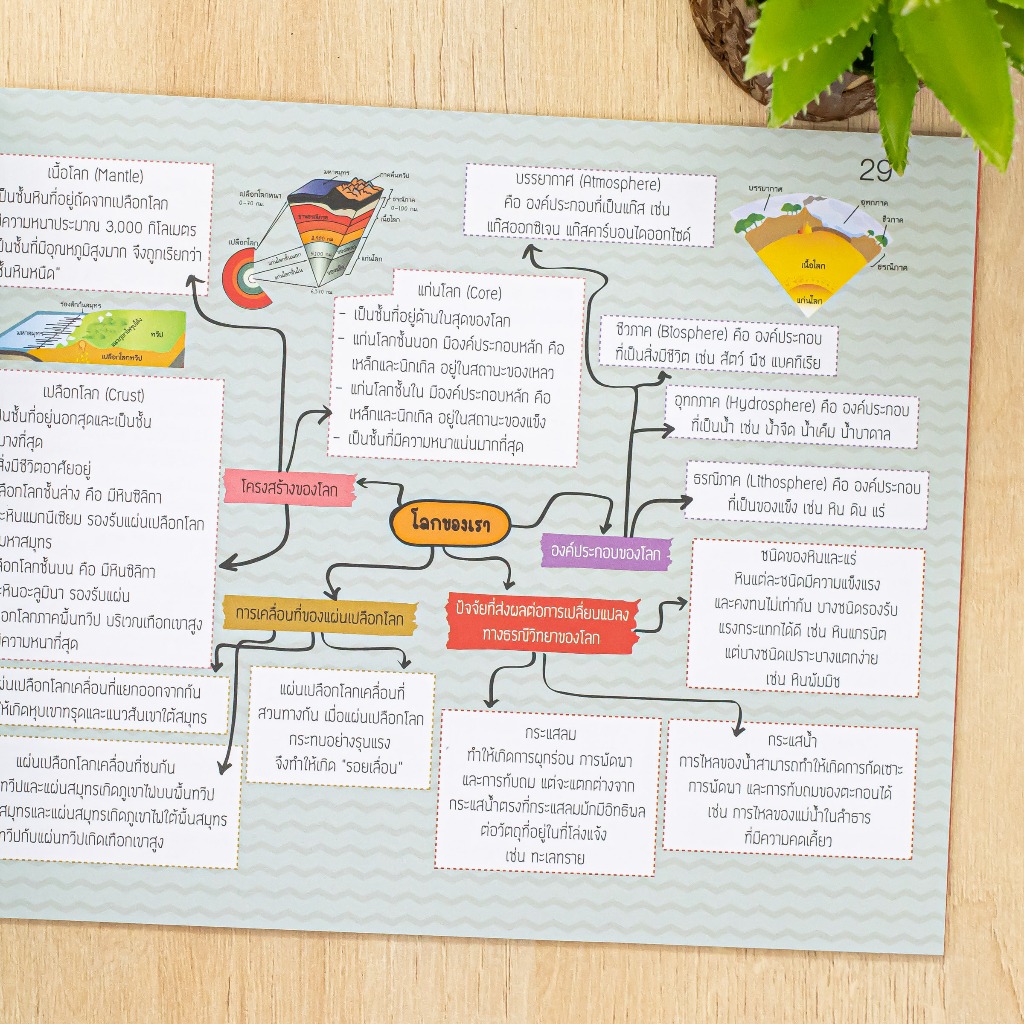 29
เนื้อโลก (Mantle)
เป็นชั้นหินที่อยู่ถัดจากเปลือกโลก
มีความหนาประมาณ 3,000 กิโลเมตร
เป็นชั้นที่มีอุณหภูมิสูงมาก จึงถูกเรียกว่า
ชั้นหินหนืด"
มหาสมุทร
ภาคพื้นทวีป
เปลือกโลกหนา
ธรณีภาค
0-100 กม.
เนื้อโลก
แก่นโลก
เปลือกโลก
แก่นโลกชั้นนอก
แก่นโลกชั้นใน
บรรยากาศ (Atmosphere)
คือ องค์ประกอบที่เป็นแก๊ส เช่น
แก๊สออกซิเจน แก๊สคาร์บอนไดออกไซด์
บรรยากาศ
อุทกภาค
ชีวภาค
ธรณีภาค
เนื้อโลก
แก่นโลก
แก่นโลก (Core)
- เป็นชั้นที่อยู่ด้านในสุดของโลก
- แก่นโลกชั้นนอก มีองค์ประกอบหลัก คือ
เหล็กและนิกเกิล อยู่ในสถานะของเหลว
- แก่นโลกชั้นใน มีองค์ประกอบหลัก คือ
เหล็กและนิกเกิล อยู่ในสถานะของแข็ง
- เป็นชั้นที่มีความหนาแน่นมากที่สุด
ชีวภาค (Biosphere) คือ องค์ประกอบ
ที่เป็นสิ่งมีชีวิต เช่น สัตว์ พืช แบคทีเรีย
อุทกภาค (Hydrosphere) คือ องค์ประกอบ
ที่เป็นน้ำ เช่น น้ำจืด น้ำเค็ม น้ำบาดาล
ธรณีภาค (Lithosphere) คือ องค์ประกอบ
ที่เป็นของแข็ง เช่น หิน ดิน แร่
ร่องลึกก้นสมุทร
มหาสมุทร
ทวีป
เปลือกโลกทวีป
เปลือกโลก (Crust)
เป็นชั้นที่อยู่นอกสุดและเป็นชั้น
บางที่สุด
สิ่งมีชีวิตอาศัยอยู่
ลือกโลกชั้นล่าง คือ มีหินซิลิกา
ะหินแมกนีเซียม รองรับแผ่นเปลือกโลก
มหาสมุทร
ลือกโลกชั้นบน คือ มีหินซิลิกา
ะหินอะลูมินา รองรับแผ่น
ลือกโลกภาคพื้นทวีป บริเวณเทือกเขาสูง
ความหนาที่สุด
โครงสร้างของโลก
โลกของเรา
องค์ประกอบของโลก
การเคลื่อนที่ของแผ่นเปลือกโลก
ปัจจัยที่ส่งผลต่อการเปลี่ยนแปลง
ทางธรณีวิทยาของโลก
ชนิดของหินและแร่
หินแต่ละชนิดมีความแข็งแรง
และคงทนไม่เท่ากัน บางชนิดรองรับ
แรงกระแทกได้ดี เช่น หินแกรนิต
แต่บางชนิดเปราะบางแตกง่าย
เช่น หินพัมมิช
ผ่นเปลือกโลกเคลื่อนที่แยกออกจากกัน
ให้เกิดหุบเขาทรุดและแนวสันเขาใต้สมุทร
แผ่นเปลือกโลกเคลื่อนที่
สวนทางกัน เมื่อแผ่นเปลือกโลก
กระทบอย่างรุนแรง
จึงทำให้เกิด "รอยเลื่อน"
แผ่นเปลือกโลกเคลื่อนที่ชนกัน
ทวีปและแผ่นสมุทรเกิดภูเขาไฟบนพื้นทวีป
สมุทรและแผ่นสมุทรเกิดภูเขาไฟใต้พื้นสมุทร
ทวีปกับแผ่นทวีปเกิดเทือกเขาสูง
กระแสลม
ทำให้เกิดการผุกร่อน การพัดพา
และการทับถม แต่จะแตกต่างจาก
กระแสน้ำตรงที่กระแสลมมักมีอิทธิพล
ต่อวัตถุที่อยู่ในที่โล่งแจ้ง
เช่น ทะเลทราย
กระแสน้ำ
การไหลของน้ำสามารถทำให้เกิดการกัดเซาะ
การพัดพา และการทับถมของตะกอนได้
เช่น การไหลของแม่น้ำในลำธาร
ที่มีความคดเคี้ยว